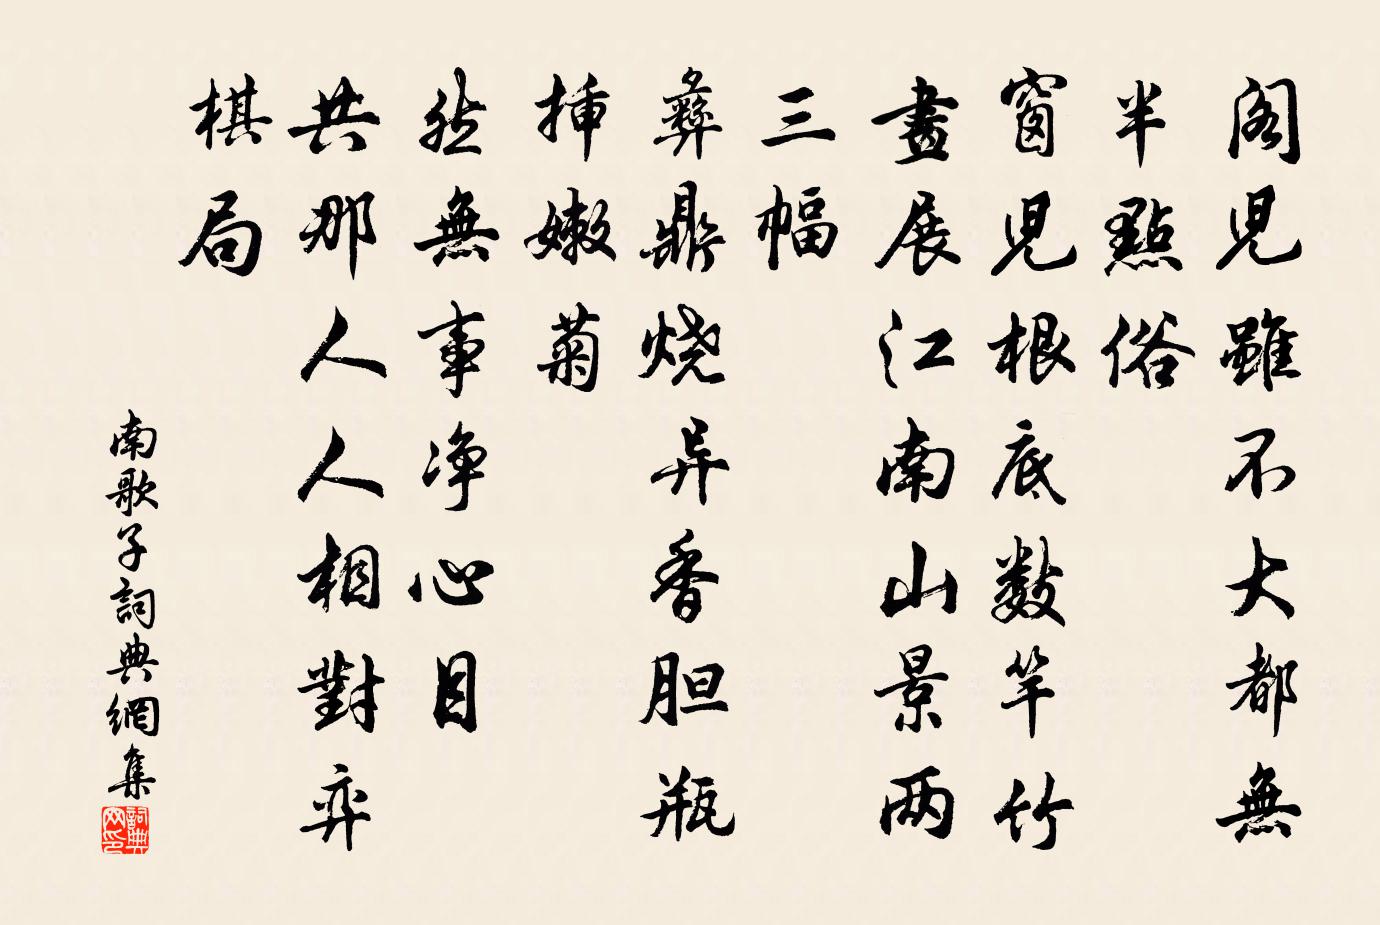 阁児雖不大都無
半點俗
窗児根底數竿竹
畫展江南山景两
三幅
彝鼎烧异香胆瓶
挿嫩菊
然無事净心目
共那人人相對弈
棋局
南歌子詞典網集
詞典
网印